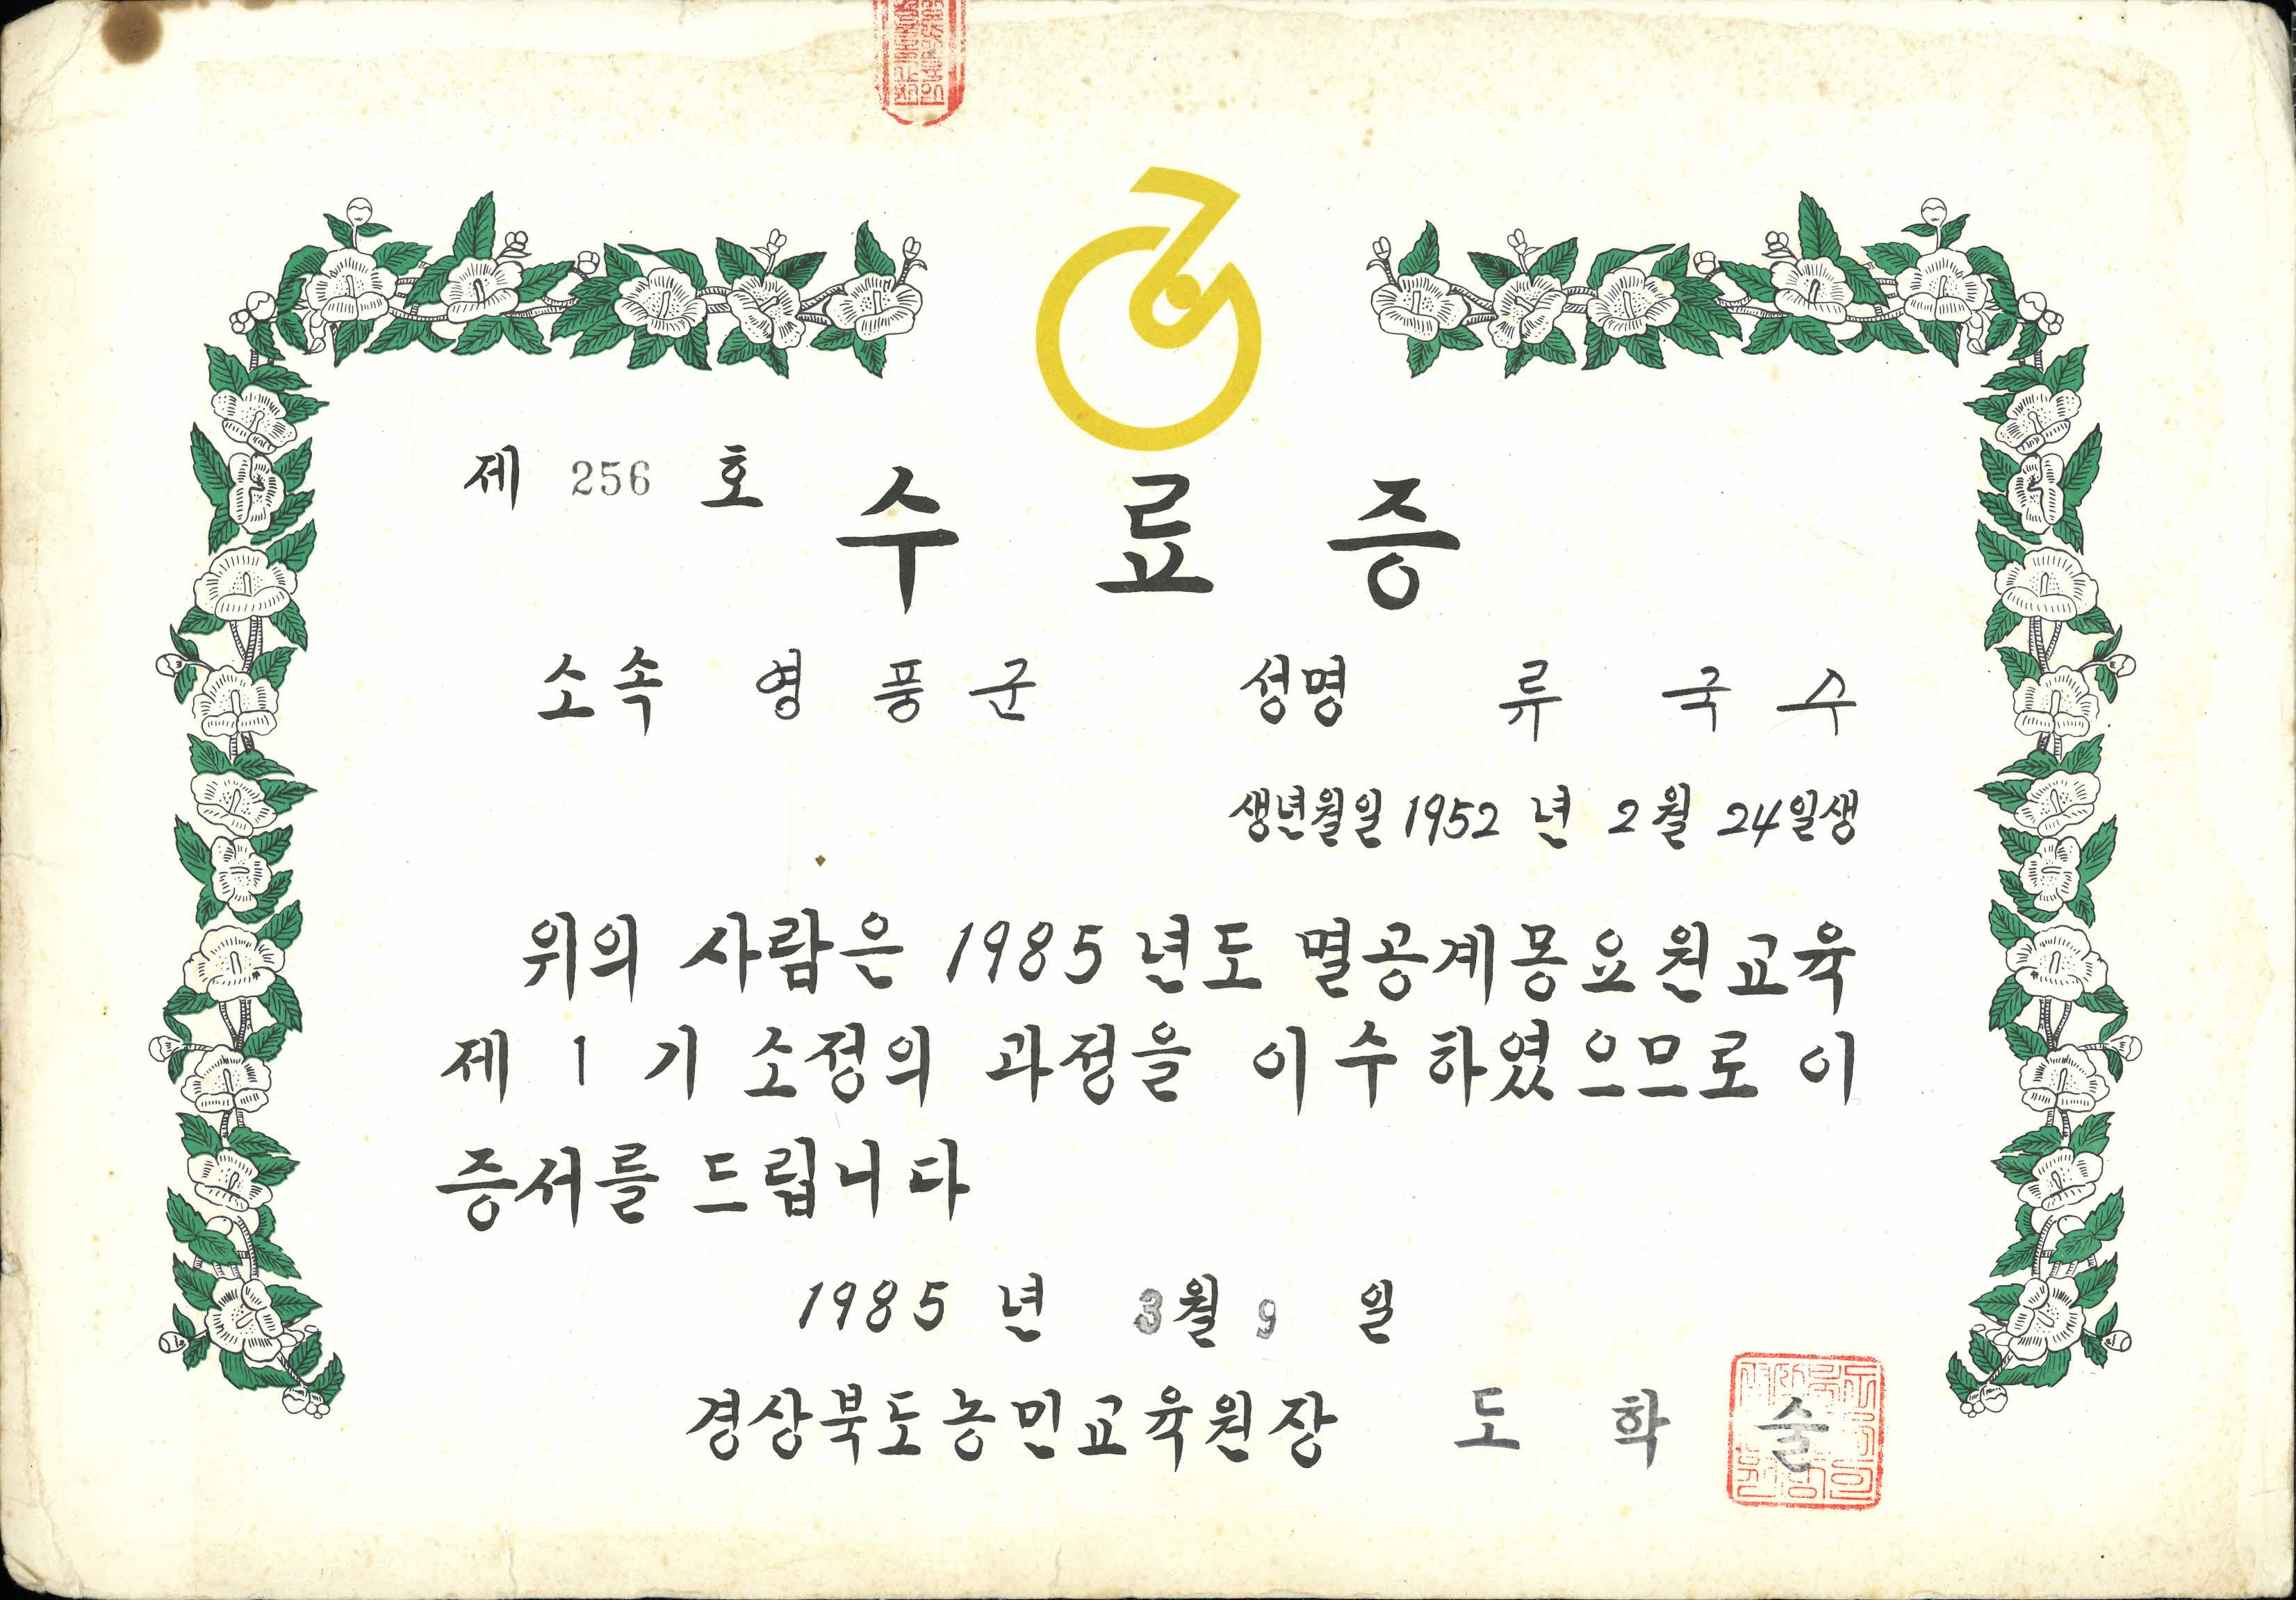 제 256 호
수료증
소속 영풍군 성명 류국수
생년월일 1952년 2월 24일생
위의 사람은 1985년도 멸공계몽요원교육
제 1 기 소정의 과정을 이수하였으므로 이
증서를 드립니다
1985년 3월 9일
경상북도농민교육원장 도학술